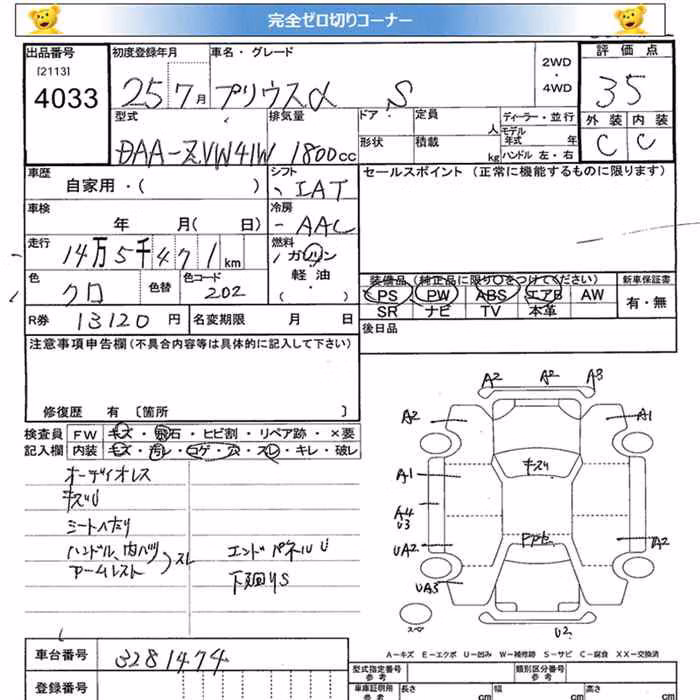 完全ゼロ切りコーナー
出品番号 初度登録年月 車名・グレード 2WD ・ 4WD 評価点
[2113]
4033 25 7月 プリウスα S 35
型式 排気量 ドア・ 定員 人 ディーラー・並行 外装 内装
DAA-ZVW41W 1800cc 形状 積載 kg モデル年式 年 C C
ハンドル 左・右
車歴 シフト セールスポイント (正常に機能するものに限ります)
自家用・( ) IAT
車検 冷房
年 月( 日) AAC
走行 燃料
14万5千471km ガソリン
軽油
・( )
色 色替 色コード
クロ 202
装備品 (純正品に限り○をつけてください) 新車保証書
PS PW ABS エアB AW 有・無
SR ナビ TV 本革
R券 13120円 名変期限 月 日 後日品
注意事項申告欄(不具合内容等は具体的に記入して下さい)
修復歴 有 〔箇所 〕
検査員 FW キズ・飛石・ヒビ割・リペア跡・×要
記入欄 内装 キズ・汚レ・コゲ・穴・スレ・キレ・破レ
オーディオレス
キズU
シートヘタリ
ハンドル、内ハリ
アームレスト スレ
エンドパネルU
下廻りS
A2 A2 A3
A2 A1
キズU
A1
A4
U3
UA2 A2
UA3
スペア U2
A-キズ E-エクボ U-凹み W-補修跡 S-サビ C-腐食 XX-交換済
車台番号 3281474
登録番号
型式指定番号 参考 類別区分番号 参考
車庫証明用 参考 長さ cm 幅 cm 高さ cm